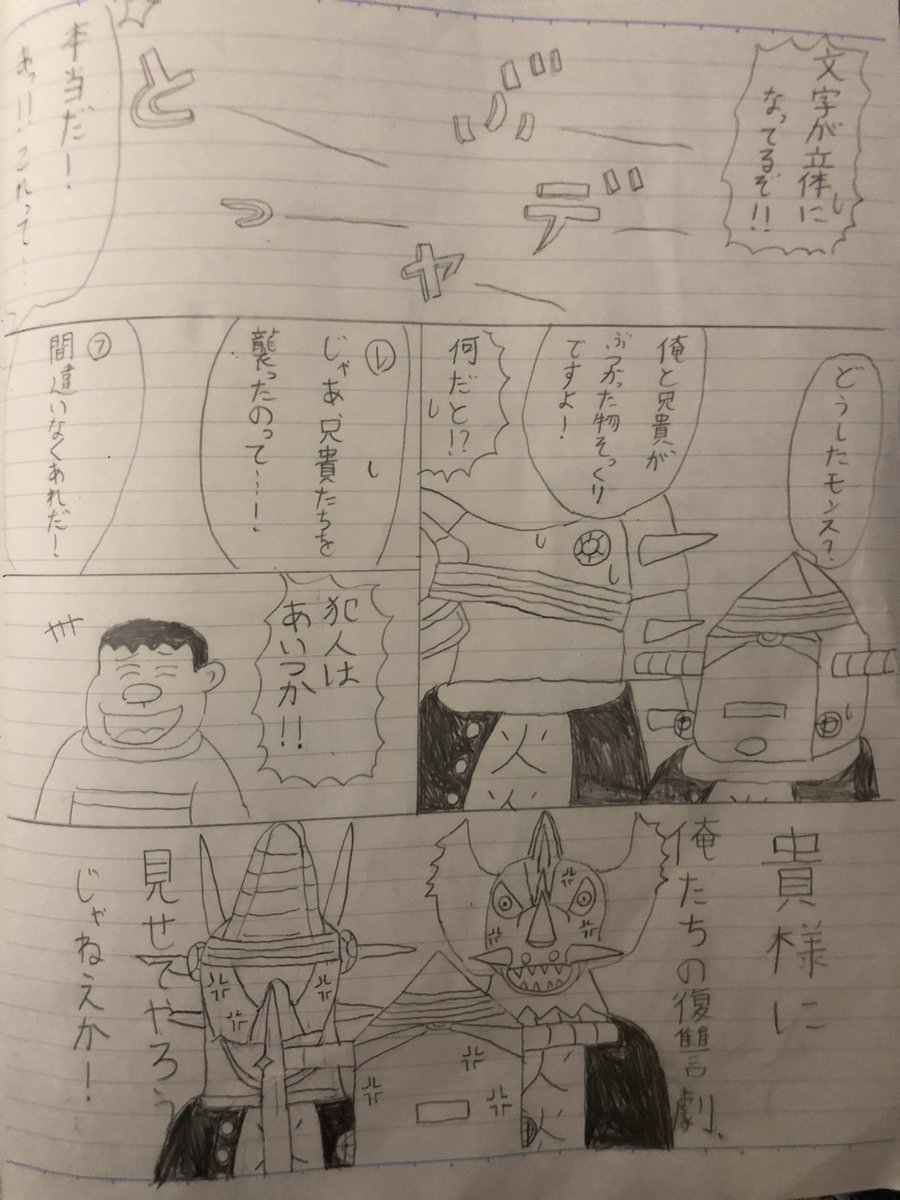 文字が立体に
なってるぞ!!
ヅ
デ
ヤ
と
っ
本当だー!
あっ!!これって…
どうしたモンス?
俺と兄貴が、
ぶつかった物そっくり
ですよ!
何だと!?
レ
じゃあ、兄貴たちを
襲ったのって…!
フ
間違いなくあれだ!
火
火
犯人は
あいつか!!
貴様に
俺たちの復讐劇、
見せてやろう
じゃねえか!
火